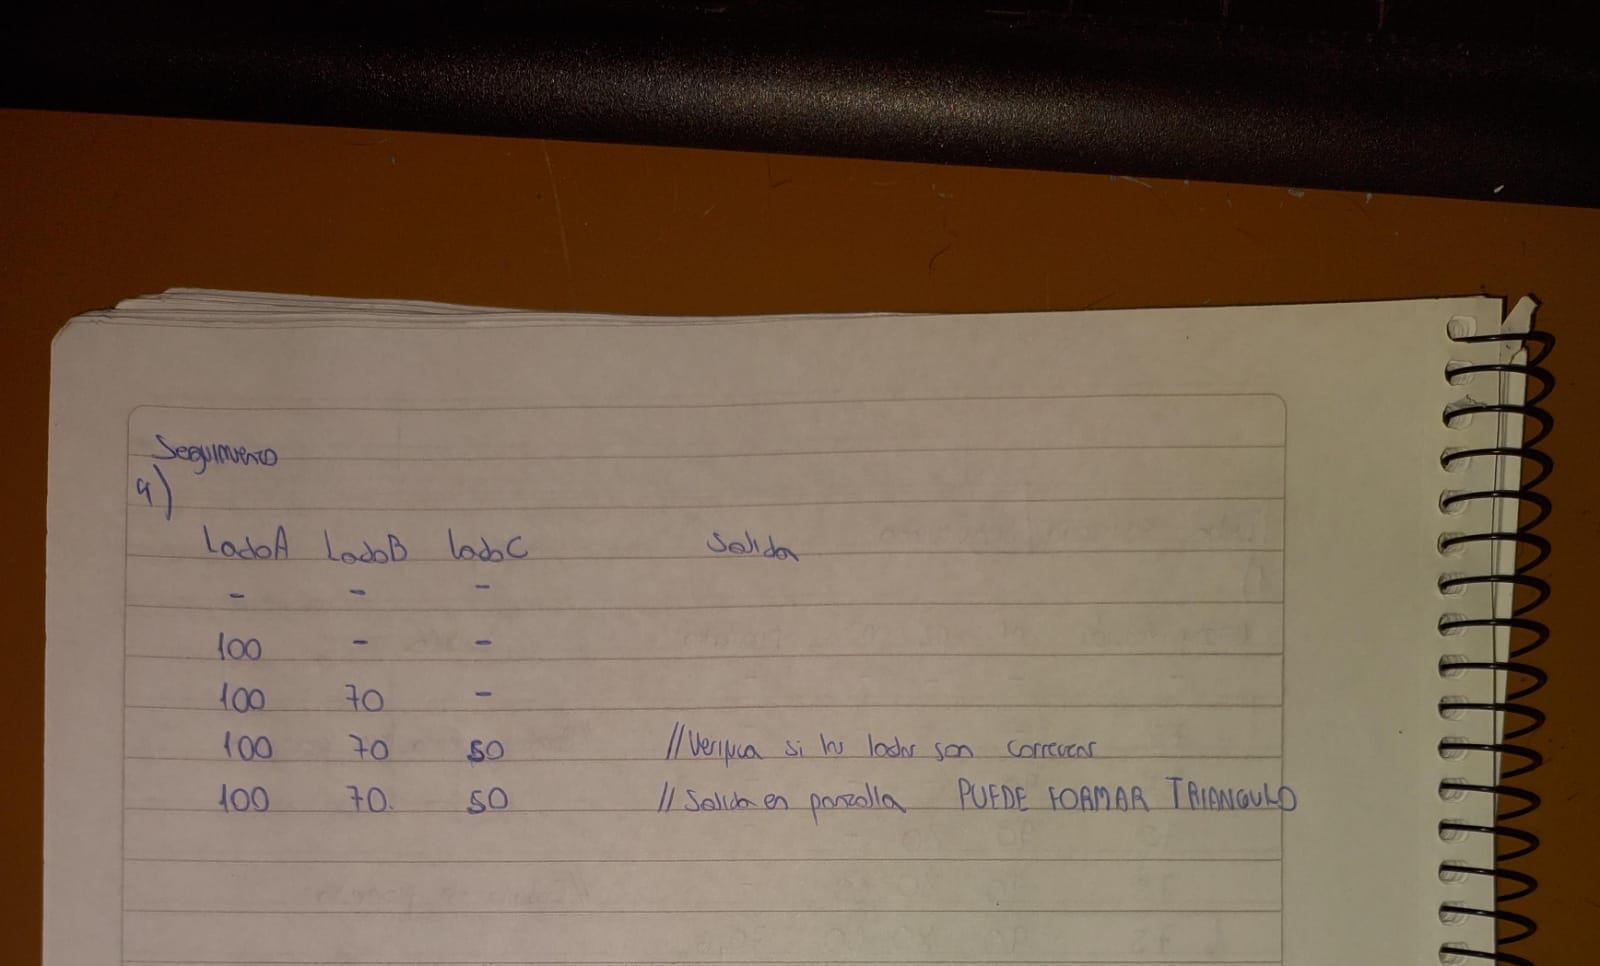 Seguimiento
9)
LadoA LadoB ladoC Salida
- - -
100 - -
100 70 -
100 70 50 //Verifica si los lados son correctos
100 70. 50 //Salida en pantalla PUEDE FORMAR TRIANGULO